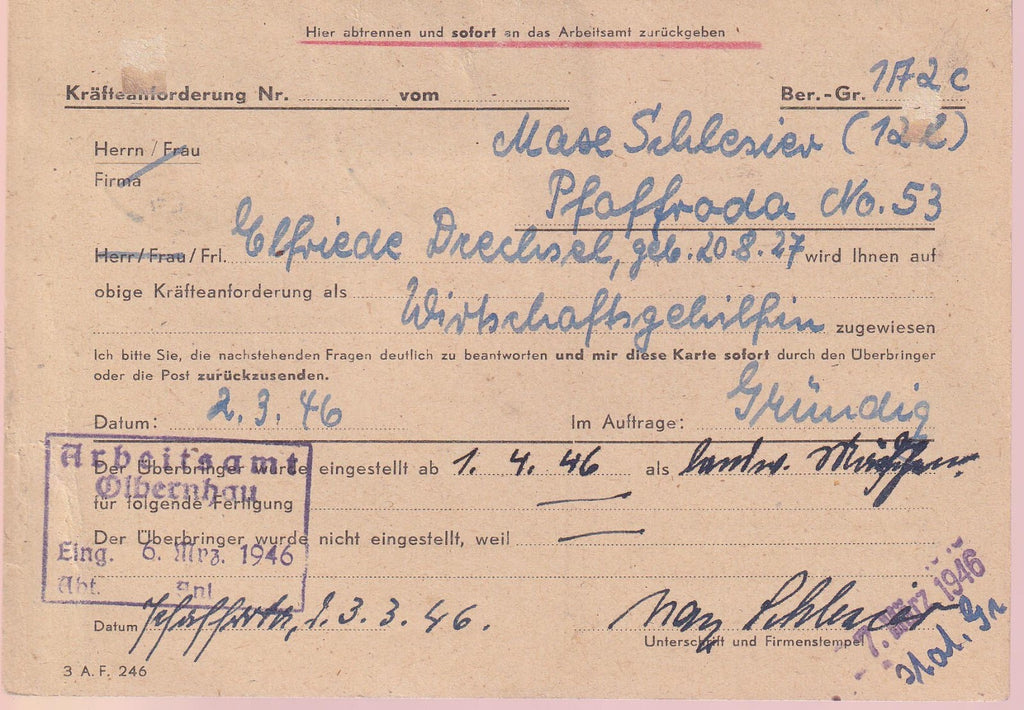 Hier abtrennen und sofort an das Arbeitsamt zurückgeben
Kräfteanforderung Nr. vom Ber.-Gr. 1A2c
Herrn / Frau Max Schlesier (12 l)
Firma
Pfaffroda No. 53
Herr/Frau/Frl. Elfriede Drechsel, geb. 20.8.27 wird Ihnen auf
obige Kräfteanforderung als
Wirtschaftsgehilfin zugewiesen
Ich bitte Sie, die nachstehenden Fragen deutlich zu beantworten und mir diese Karte sofort durch den Überbringer
oder die Post zurückzusenden.
Datum: 2.3.46 Im Auftrage: Gründig
Arbeitsamt
Olbernhau
Eing. 6. Mrz. 1946
Abt. Anl
Der Überbringer wurde eingestellt ab 1. 4. 46 als landw. Mädchen
für folgende Fertigung
Der Überbringer wurde nicht eingestellt, weil
Datum Pfaffroda, d. 3. 3. 46. Max Schlesier
Unterschrift und Firmenstempel
7. März 1946
3 A. F. 246